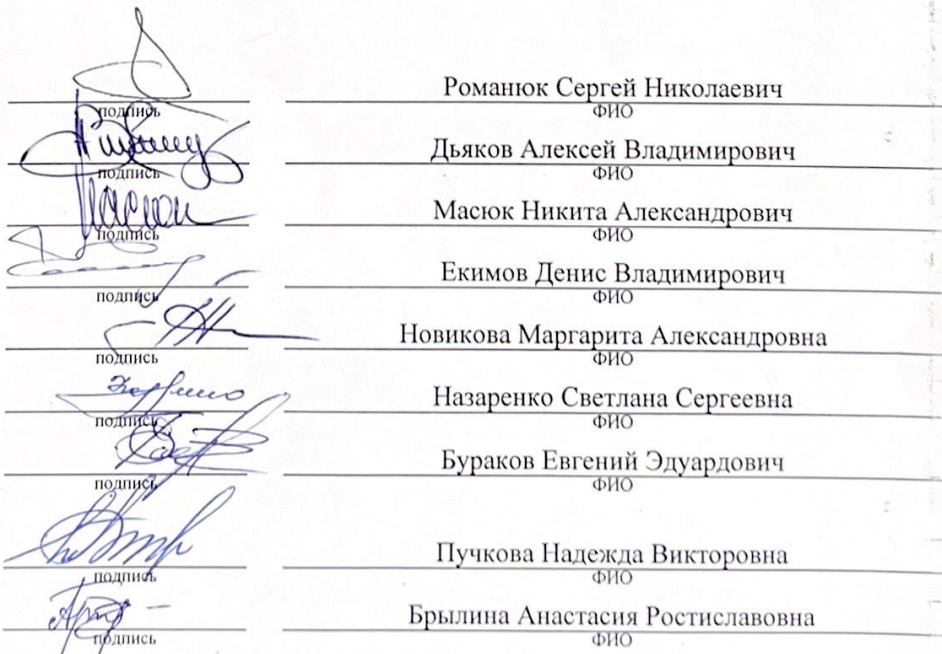 Романюк Сергей Николаевич
подпись ФИО
Дьяков Алексей Владимирович
подпись ФИО
Масюк Никита Александрович
подпись ФИО
Екимов Денис Владимирович
подпись ФИО
Новикова Маргарита Александровна
подпись ФИО
Назаренко Светлана Сергеевна
подпись ФИО
Бураков Евгений Эдуардович
подпись ФИО
Пучкова Надежда Викторовна
подпись ФИО
Брылина Анастасия Ростиславовна
подпись ФИО